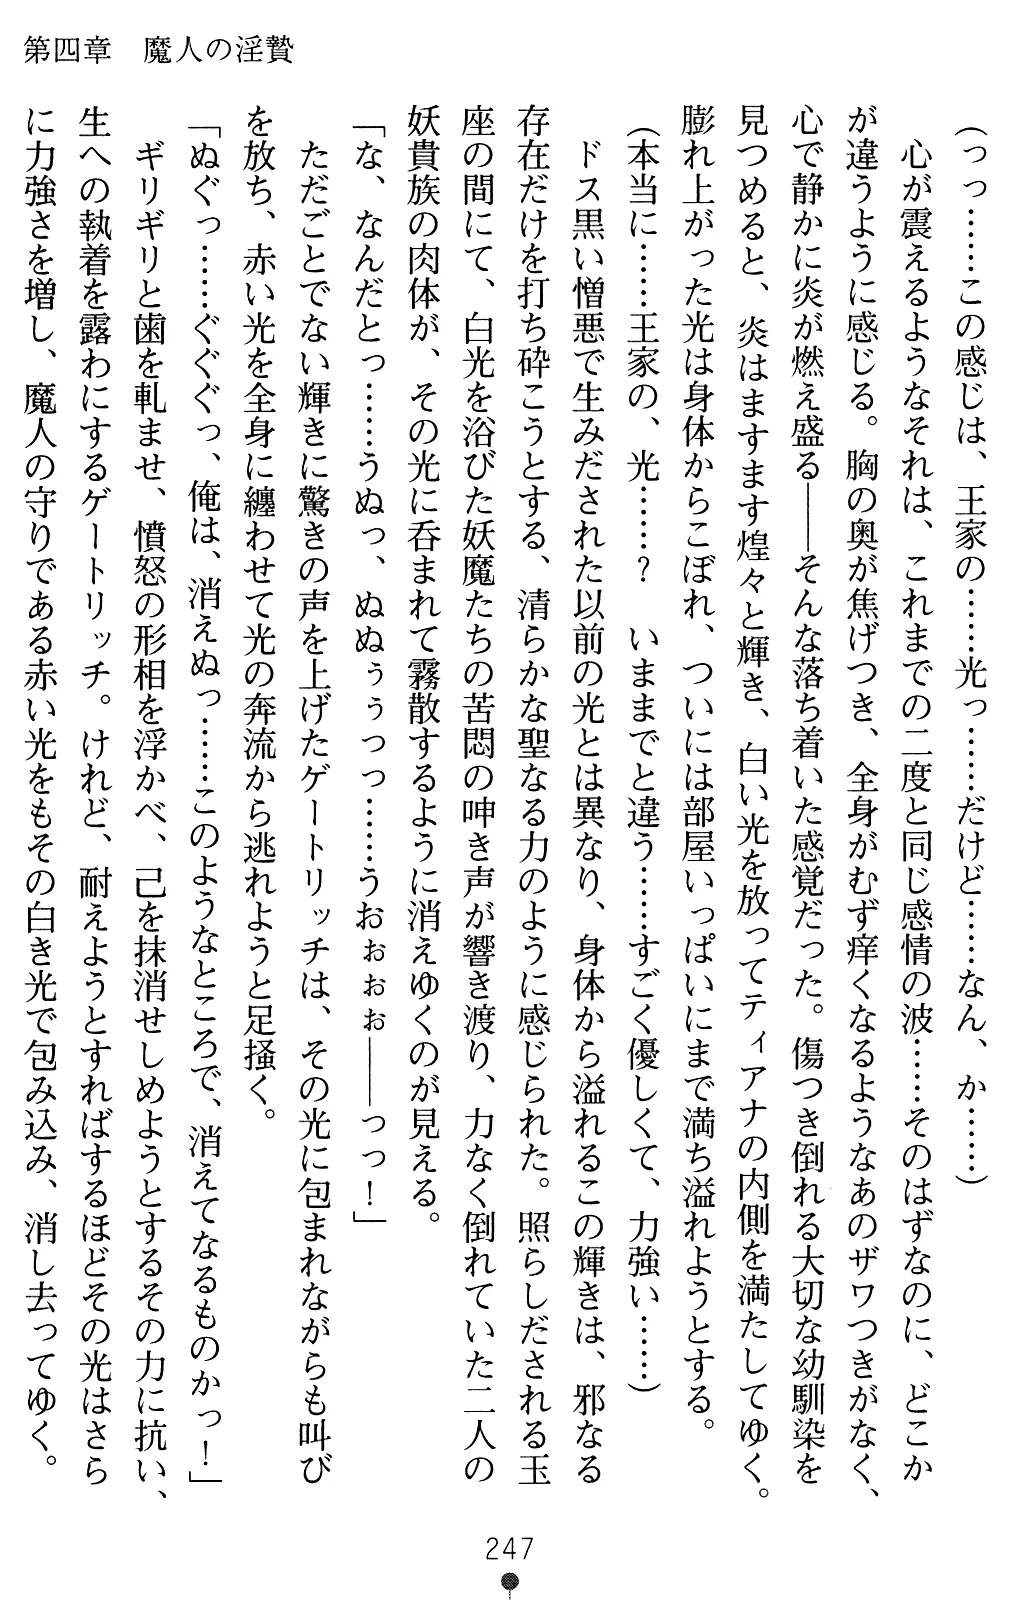 第四章　魔人の淫贄
(っっ……この感じは、王家の……光っ……だけど……なん、か……)
　心が震えるようなそれは、これまでの二度と同じ感情の波……そのはずなのに、どこか
が違うように感じる。胸の奥が焦げつき、全身がむず痒くなるようなあのザワつきがなく、
心で静かに炎が燃え盛る――そんな落ち着いた感覚だった。傷つき倒れる大切な幼馴染を
見つめると、炎はますます煌々と輝き、白い光を放ってティアナの内側を満たしてゆく。
膨れ上がった光は身体からこぼれ、ついには部屋いっぱいにまで満ち溢れようとする。
(本当に……王家の、光……？　いままでと違う……すごく優しくて、力強い……)
　ドス黒い憎悪で生みだされた以前の光とは異なり、身体から溢れるこの輝きは、邪なる
存在だけを打ち砕こうとする、清らかな聖なる力のように感じられた。照らしだされる玉
座の間にて、白光を浴びた妖魔たちの苦悶の呻き声が響き渡り、力なく倒れていた二人の
妖貴族の肉体が、その光に呑まれて霧散するように消えゆくのが見える。
「な、なんだとっ……うぬっ、ぬぬぅぅっっ……うおぉぉぉ――っっ！」
　ただごとでない輝きに驚きの声を上げたゲートリッチは、その光に包まれながらも叫び
を放ち、赤い光を全身に纏わせて光の奔流から逃れようと足掻く。
「ぬぐっ……ぐぐぐっ、俺は、消えぬっ……このようなところで、消えてなるものかっ！」
　ギリギリと歯を軋ませ、憤怒の形相を浮かべ、己を抹消せしめようとするその力に抗い、
生への執着を露わにするゲートリッチ。けれど、耐えようとすればするほどその光はさら
に力強さを増し、魔人の守りである赤い光をもその白き光で包み込み、消し去ってゆく。
247